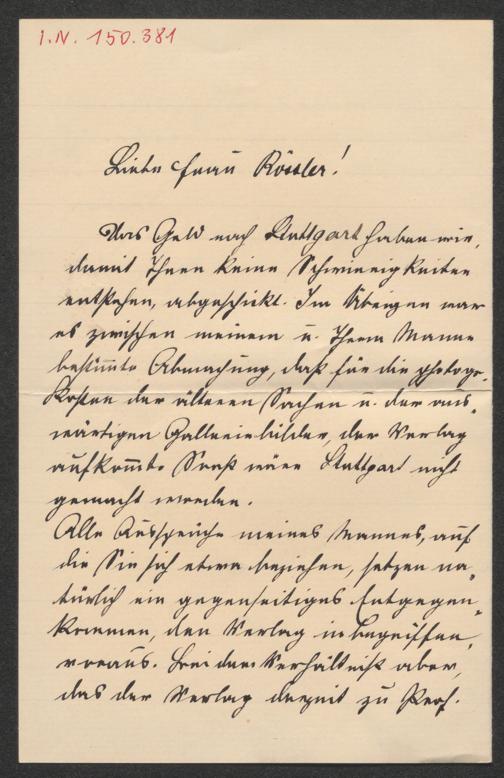 I.N. 150.381
Liebe Frau Rössler!
Das Geld nach Stuttgart haben wir,
damit Ihnen keine Schwierigkeiten
entstehen, abgeschickt. Im Übrigen war
es zwischen meinem u. Ihrem Manne
bestimmte Abmachung, daß für die photogr.
Kosten der älteren Sachen u. der aus-
wärtigen Galleriebilder, der Verlag
aufkommt. Sonst wäre Stuttgart nicht
gemacht worden.
Alle Aussprüche meines Mannes, auf
die Sie sich etwa beziehen, setzen na-
türlich ein gegenseitiges Entgegen-
kommen, den Verlag inbegriffen,
voraus. Bei dem Verhältniß aber,
das der Verlag derzeit zu Prof.